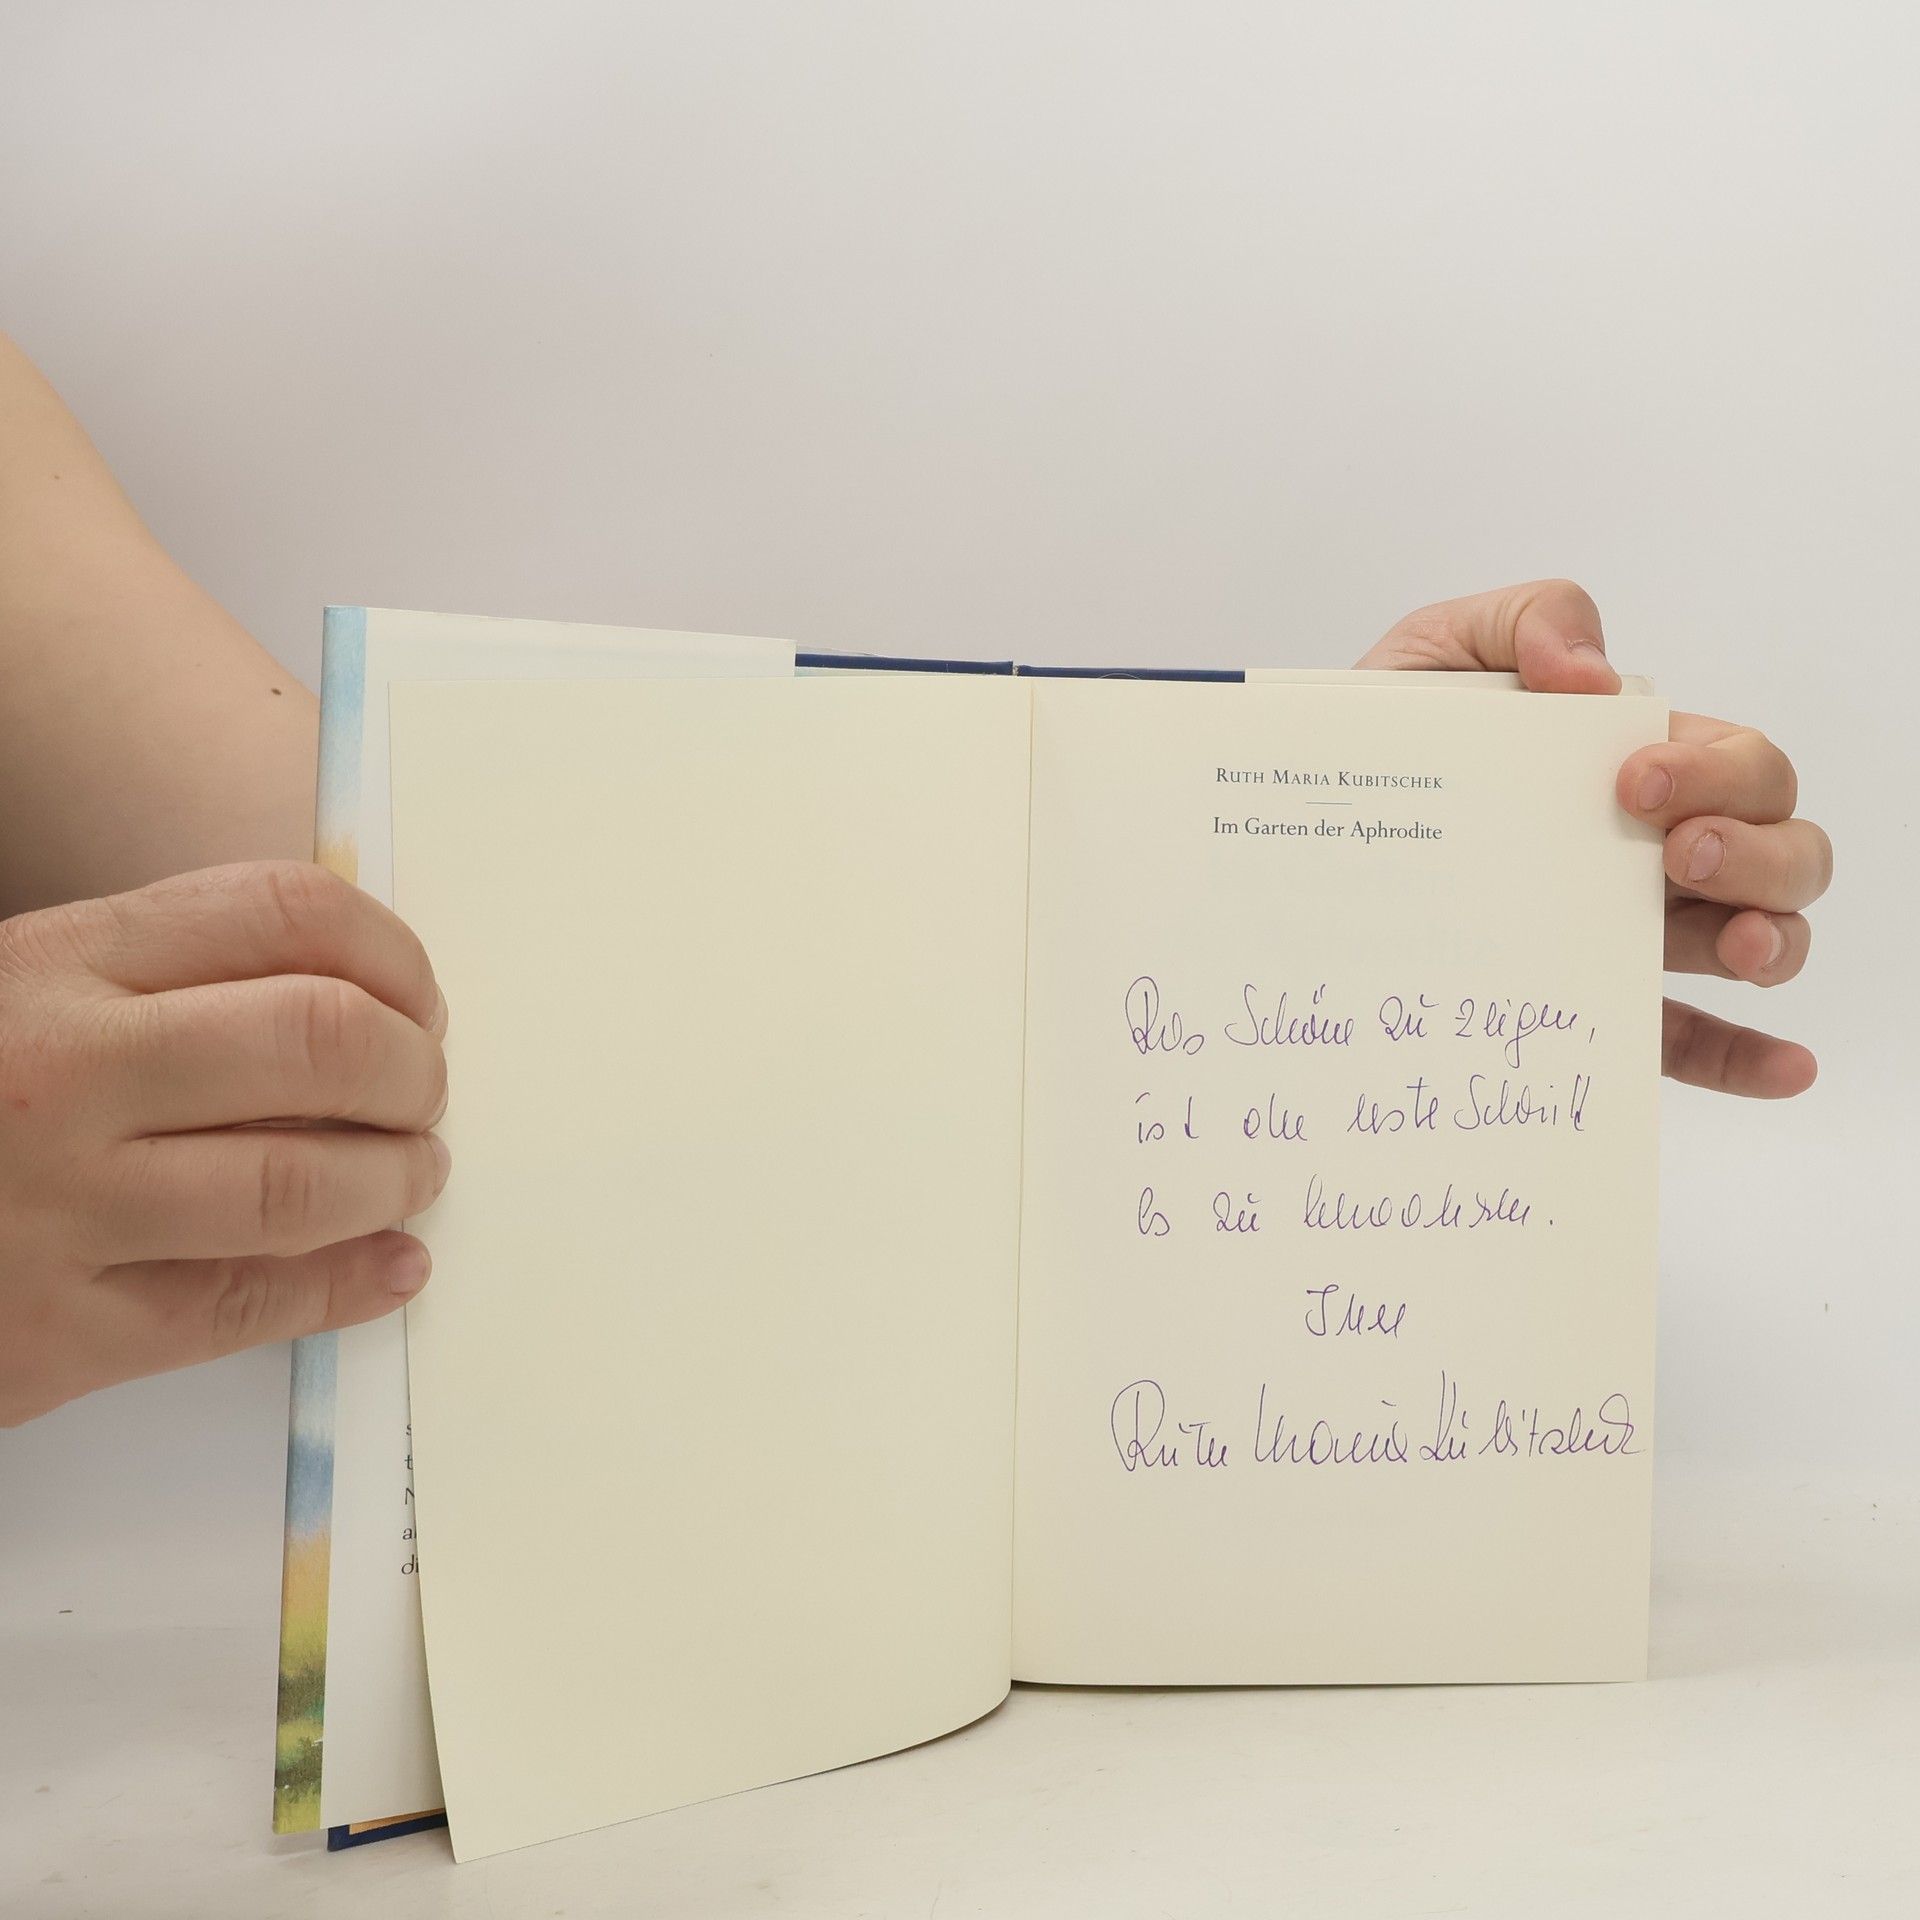 RUTH MARIA KUBITSCHEK
Im Garten der Aphrodite
Das Schöne zu zeigen,
ist der erste Schritt
es zu bewahren.
Ihre
Ruth Maria Kubitschek